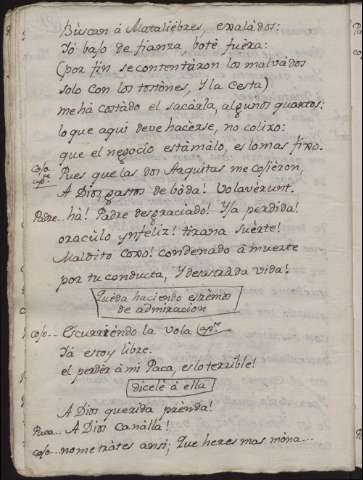 Búscan á Mataliébres, exalàdos:
Yó bajo de fianza, boté fuèra:
(por fin se contentàron los malvàdos
solo con los tostònes, Y la Cesta)
me há costàdo el sacárla, algunos quartos;
lo que aqui deve hacèrse, no colixo:
que el negocio está màlo, es lo mas fixo.
Cojo. Pues que las dos Arquitas me cojièron,
A Dios gastos de bòda! Volavèrunt.
Padre... há! Padre desgraciado! Hija perdida!
oracùlo ynfelíz! tirana suèrte!
Maldito Coxo! condenàdo á muerte
por tu conducta, Y desalmàda vida!
Quèda haciendo estrèmos
de admiracion
Cojo... Escurrièndo la vola
Yá estoy libre.
el perdèr á mi Paca, es lo terrible!
dicele á ella
A Dios querida prènda!
Paca... A Dios Canàlla!
Cojo... no me tràtes ansi; Que heres mas mòna...